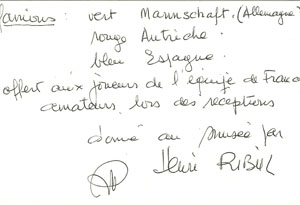 fanions : vert Mannschaft. (Allemagne)
rouge Autriche.
bleu Espagne.
offert aux joueurs de l'équipe de France
amateurs lors des receptions
donné au musée par
Henri RIBUL